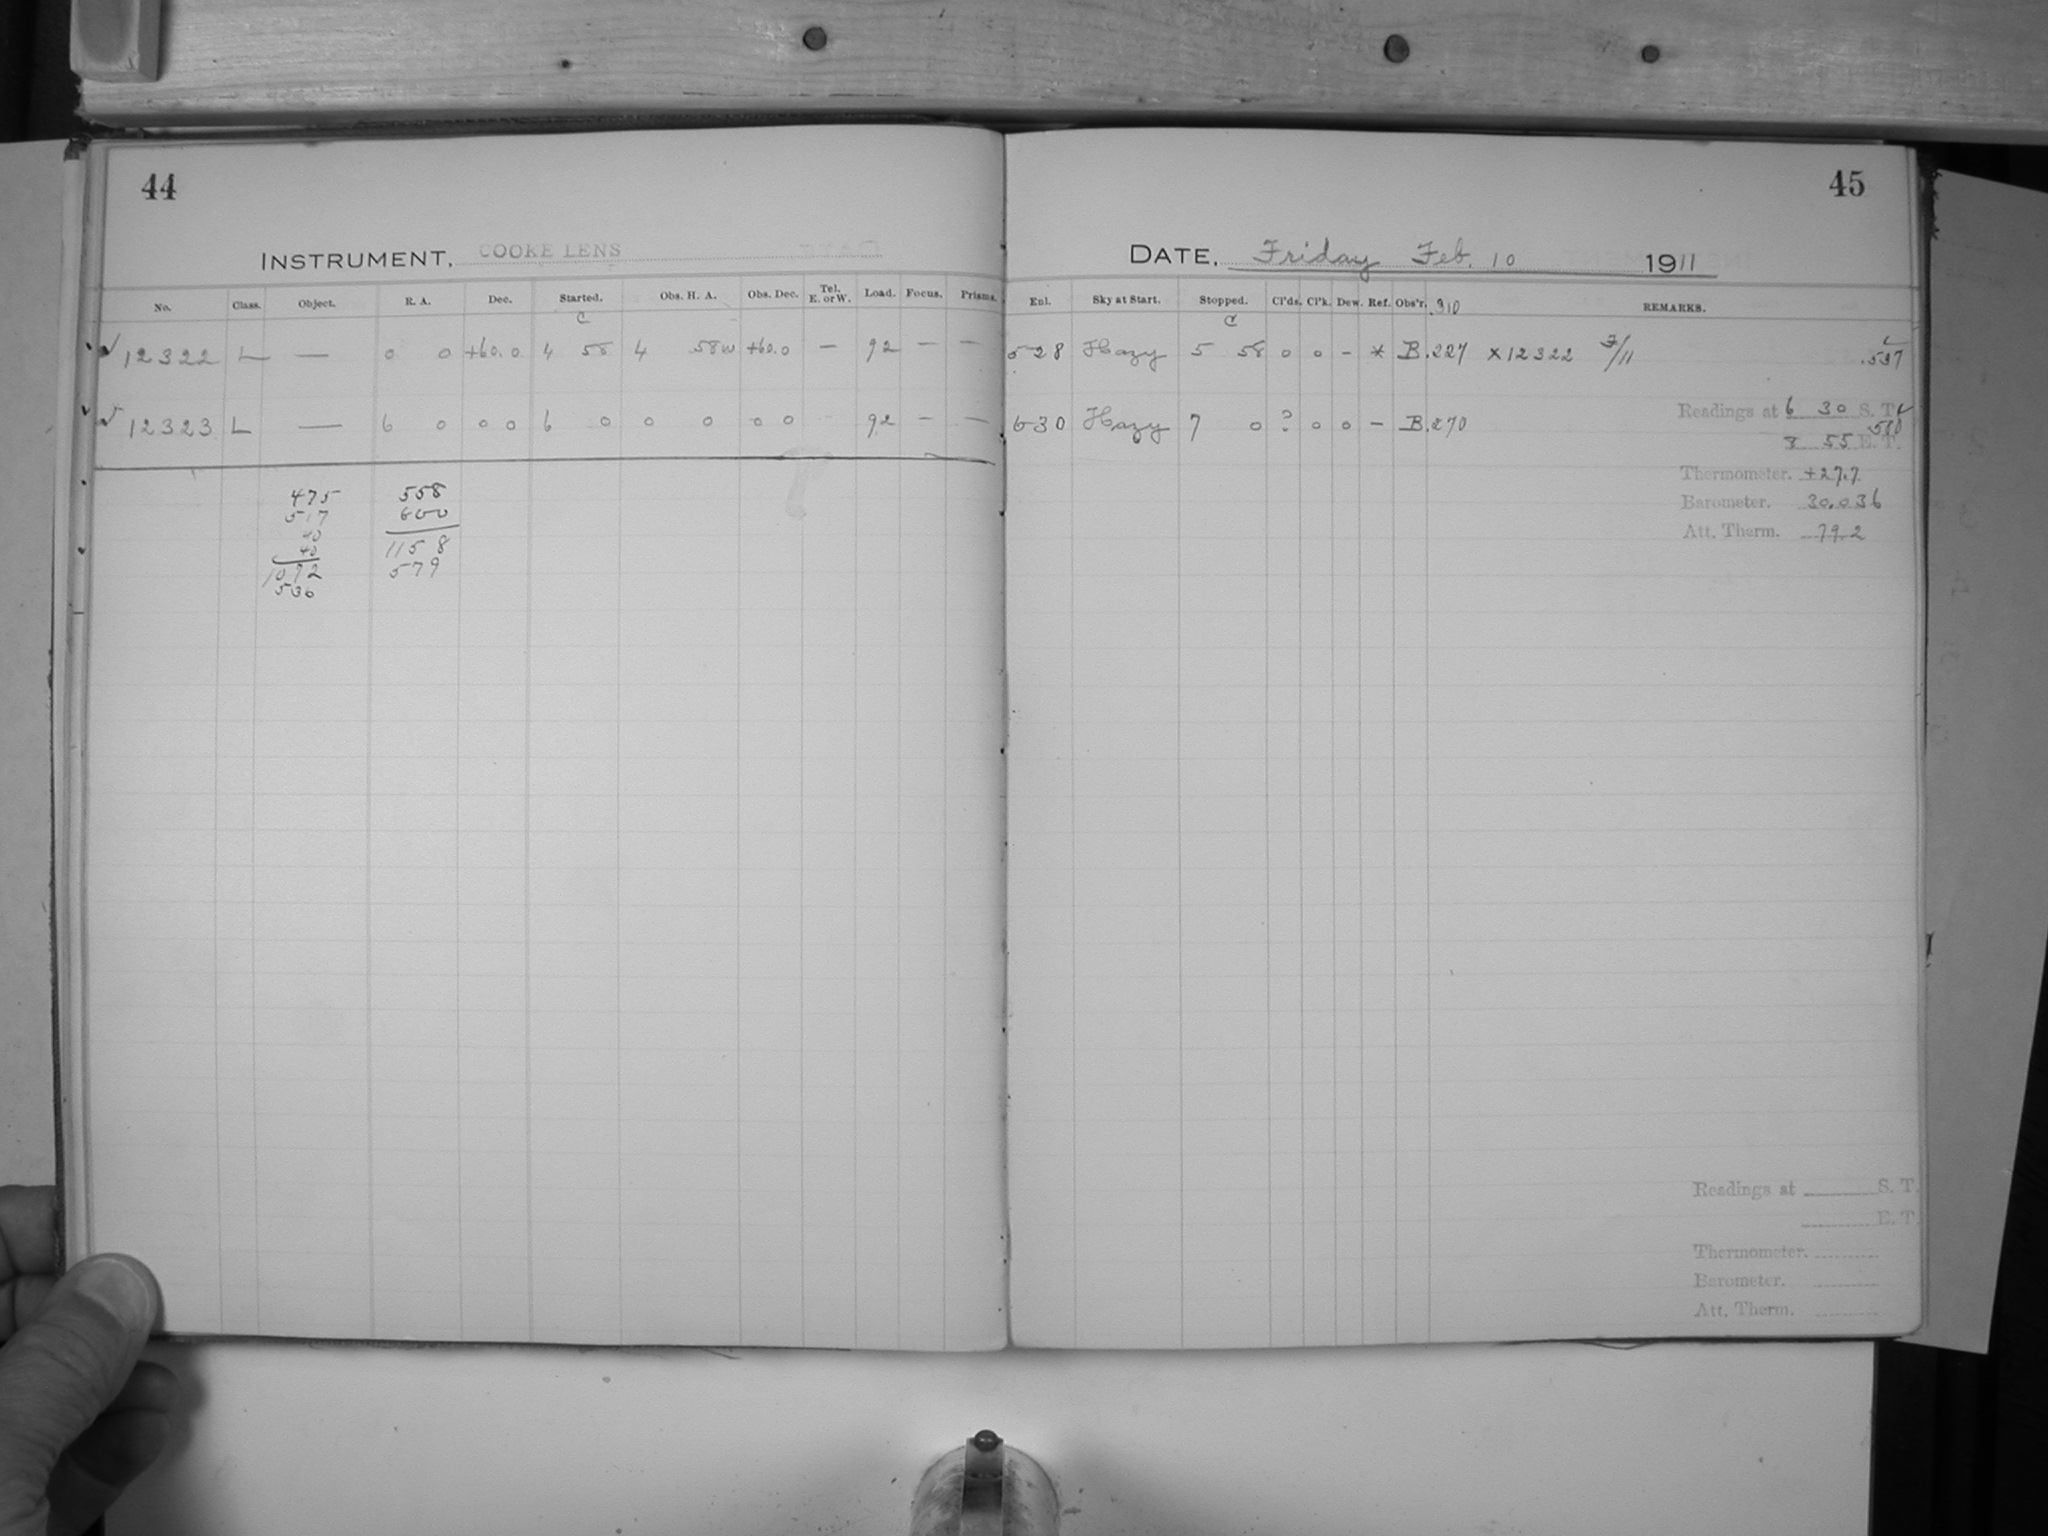 44
INSTRUMENT. COOKE LENS
No. Class. Object. R. A. Dec. Started. Obs. H. A. Obs. Dec. Tel. E. or W. Load. Focus. Prisms.
C
12322 L — 0 0 +60.0 4 58 4 58w +60.0 — 92 — —
12323 L — 6 0 0 0 6 0 0 0 0 0 92 — —
475 558
517 600
40
40 1158
1072 579
536
45
DATE. Friday Feb. 10 1911
Enl. Sky at Start. Stopped. Cl'ds. Cl'k. Dew. Ref. Obs'r. .310 REMARKS.
C
528 Hazy 5 58 0 0 - * B .227 ×12322 7/11 .537
630 Hazy 7 0 ? 0 0 - B .270
Readings at 6 30 S. T.
.580
8 55 E. T.
Thermometer. +27.7
Barometer. 30.036
Att. Therm. 79.2
Readings at S. T.
E. T.
Thermometer.
Barometer.
Att. Therm.